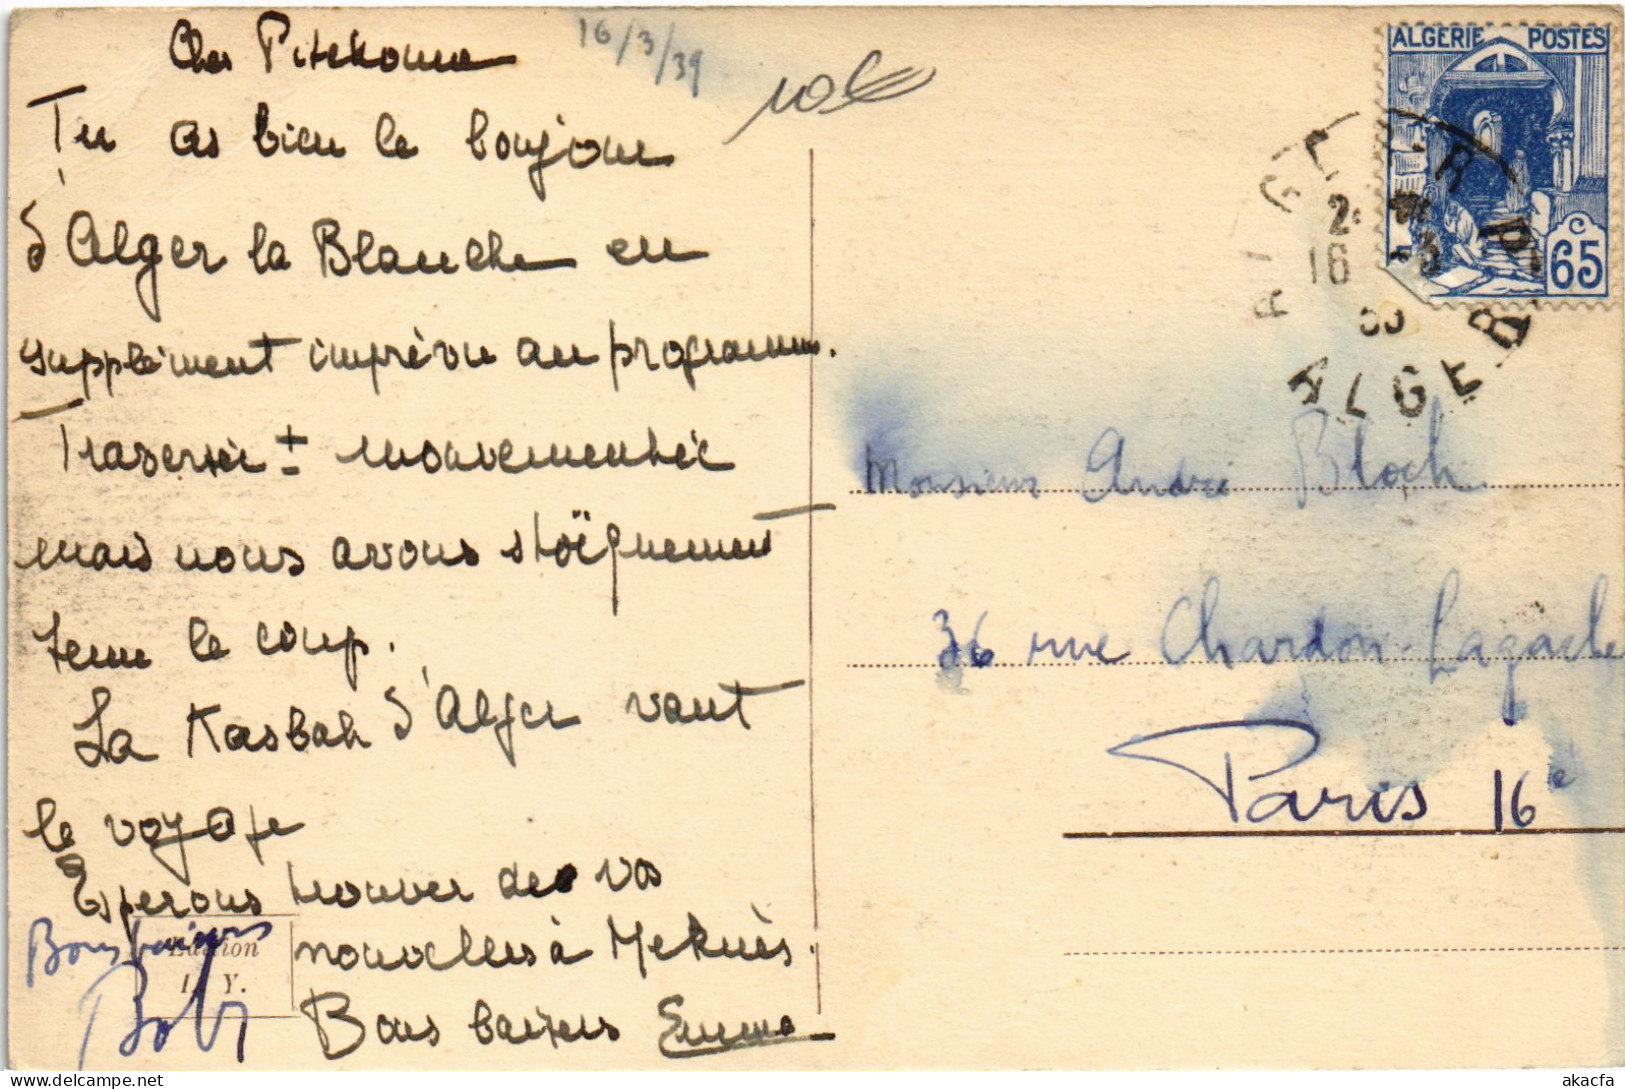 16/3/39
Cher Pitchoune
Tu as bien le bonjour
d'Alger la Blanche en
supplément imprévu au programme.
Traversée ± mouvementée
mais nous avons stoïquement
tenu le coup.
La Kasbah d'Alger vaut
le voyage
Espérons trouver de vos
nouvelles à Meknès.
Bons baisers Emma
Bons baisers
Bob
Edition
Y.
ALGERIE POSTES
65 c
ALGER R.P.
16
ALGER
Monsieur André Bloch
36 rue Chardon-Lagache
Paris 16e
akacfa